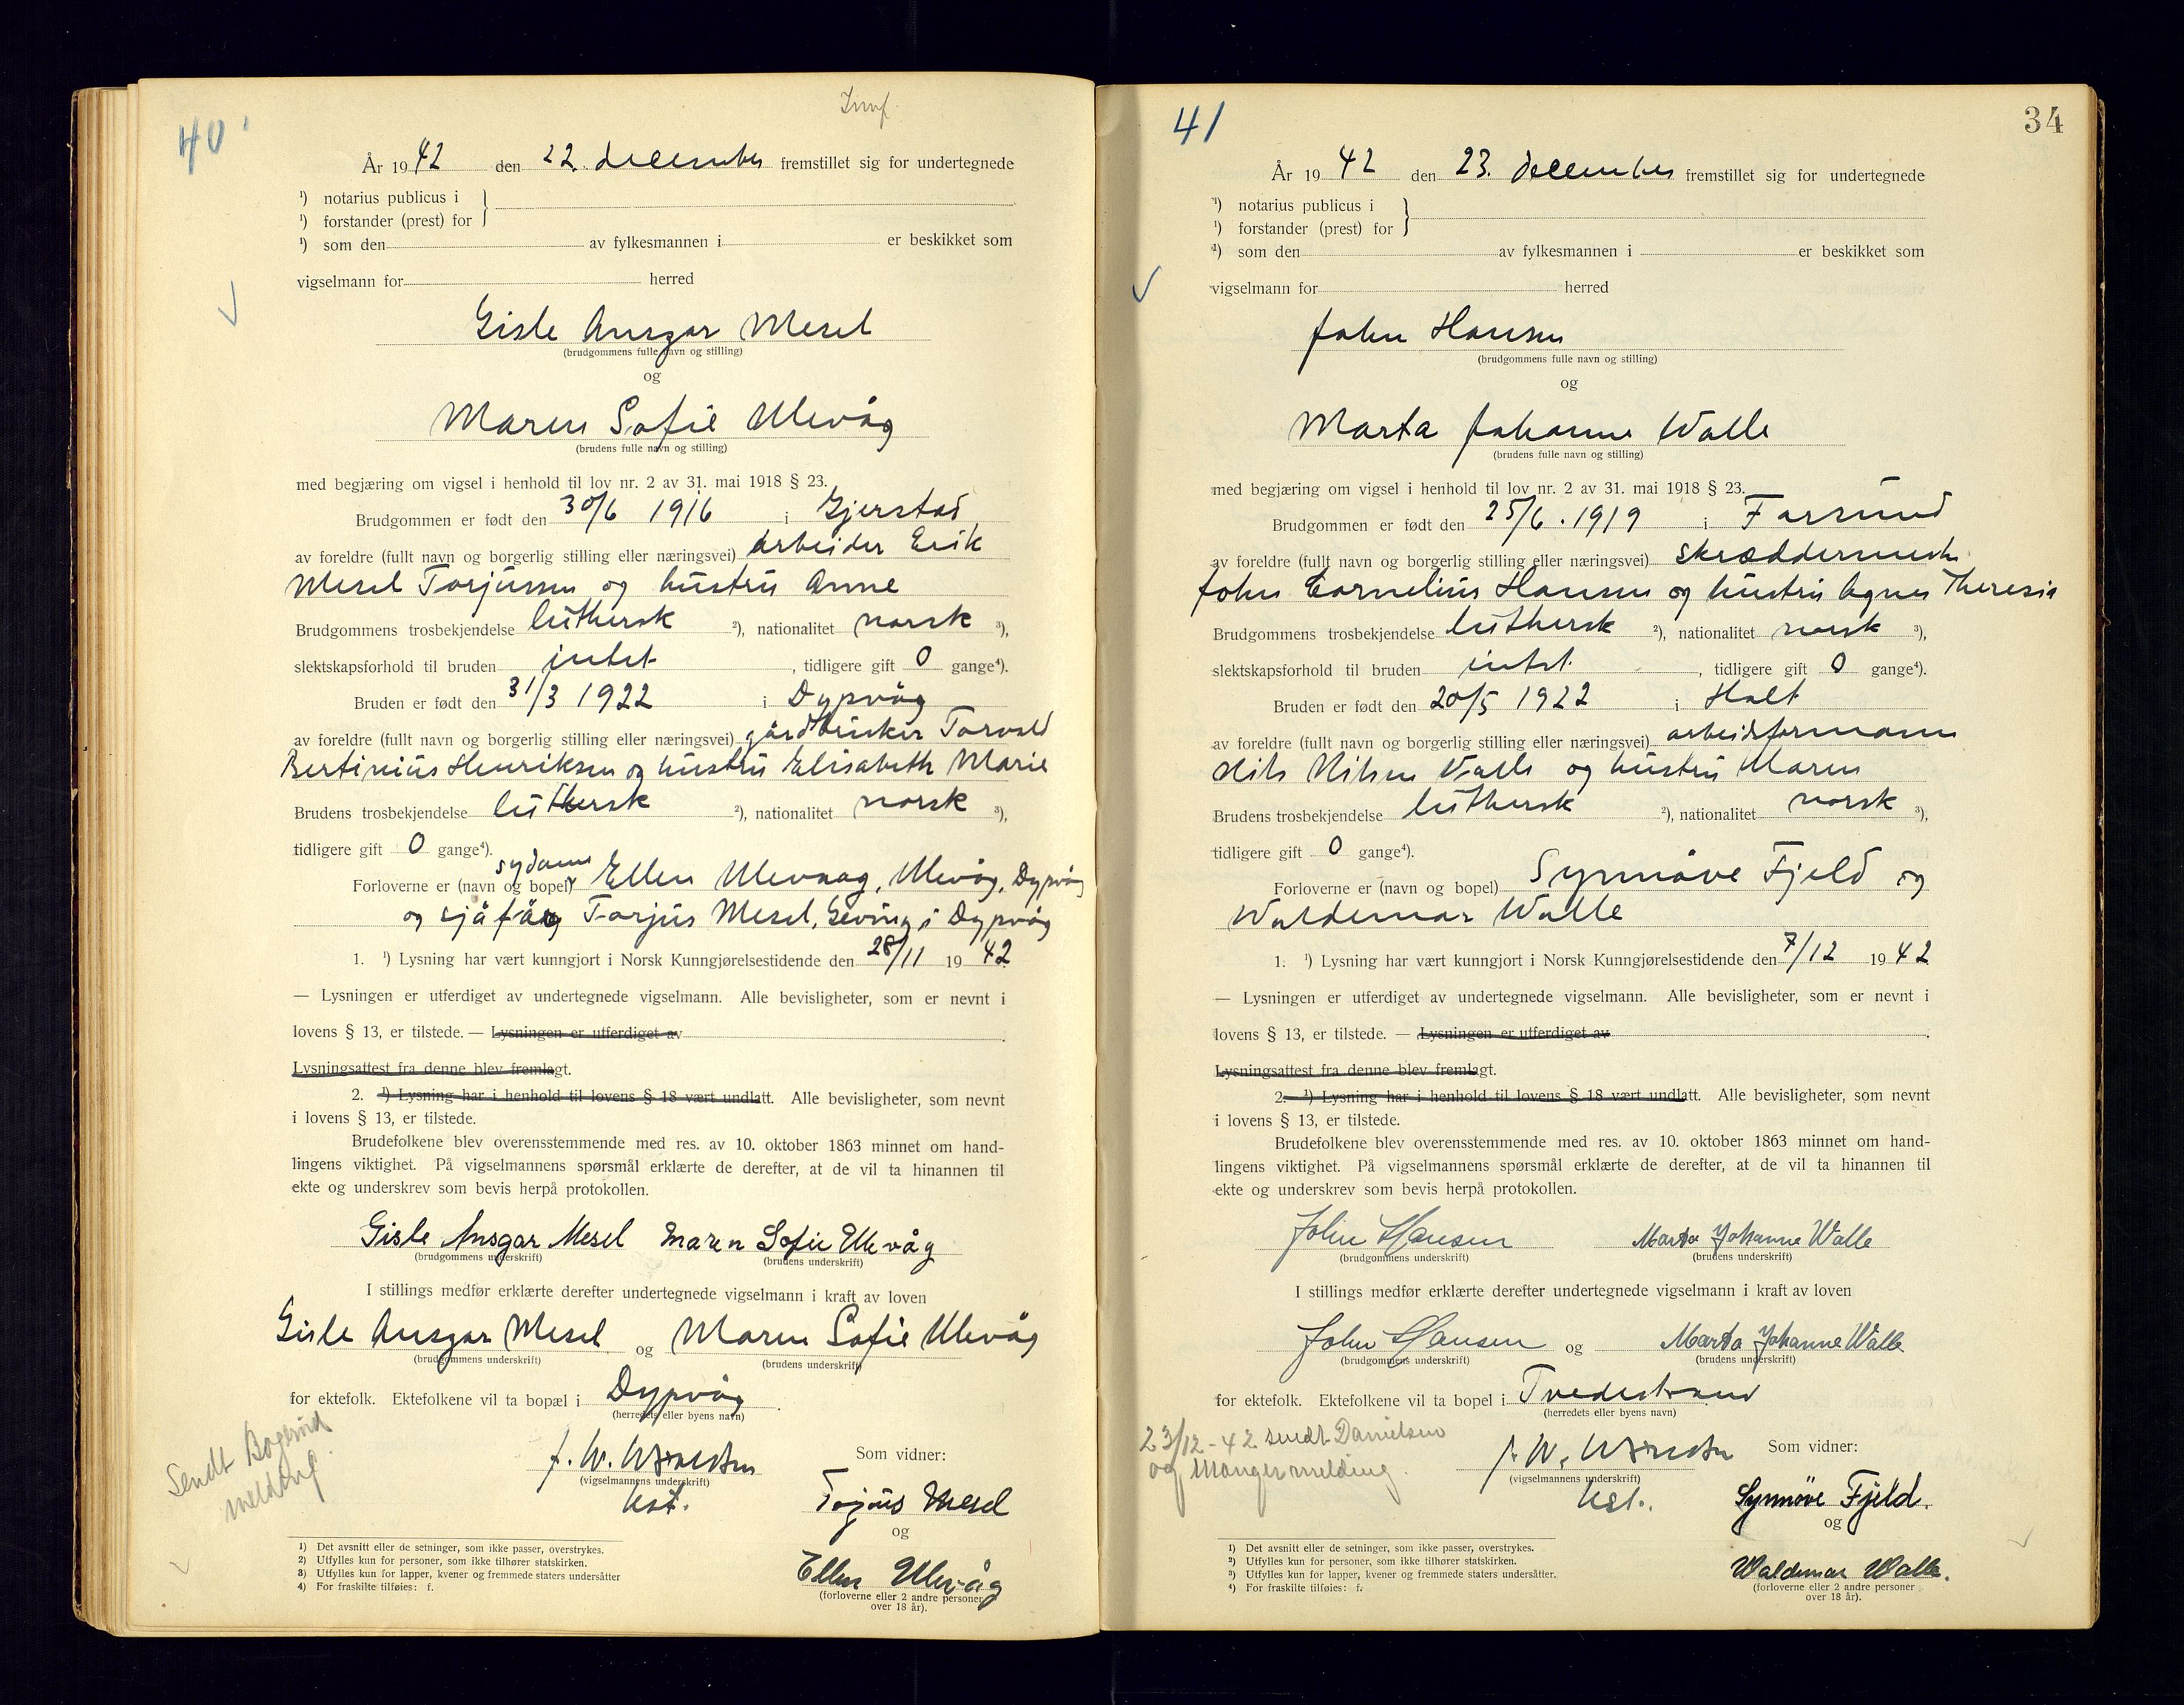 40
År 1942 den 22. december fremstillet sig for undertegnede
¹) notarius publicus i
¹) forstander (prest) for
¹) som den av fylkesmannen i er beskikket som
vigselmann for herred
Gisle Ansgar Mesel
(brudgommens fulle navn og stilling)
og
Maren Sofie Ulevåg
(brudens fulle navn og stilling)
med begjæring om vigsel i henhold til lov nr. 2 av 31. mai 1918 § 23.
Brudgommen er født den 30/6 1916 i Gjerstad
av foreldre (fullt navn og borgerlig stilling eller næringsvei) arbeider Erik
Mesel Torjussen og hustru Anne
Brudgommens trosbekjendelse luthersk ²), nationalitet norsk ³),
slektskapsforhold til bruden intet, tidligere gift 0 gange⁴).
Bruden er født den 31/3 1922 i Dypvåg
av foreldre (fullt navn og borgerlig stilling eller næringsvei) gårdbruker Torvald
Bertinius Henriksen og hustru Elisabeth Marie
Brudens trosbekjendelse luthersk ²), nationalitet norsk ³),
tidligere gift 0 gange⁴).
sydame
Forloverne er (navn og bopel) Ellen Ulevaag, Ulevåg, Dypvåg
og sjåfør Torjus Mesel, Geving i Dypvåg
1. ¹) Lysning har vært kunngjort i Norsk Kunngjørelsestidende den 28/11 1942
— Lysningen er utferdiget av undertegnede vigselmann. Alle bevisligheter, som er nevnt i
lovens § 13, er tilstede. — Lysningen er utferdiget av
Lysningsattest fra denne blev fremlagt.
2. ¹) Lysning har i henhold til lovens § 18 vært undlatt. Alle bevisligheter, som nevnt
i lovens § 13, er tilstede.
Brudefolkene blev overensstemmende med res. av 10. oktober 1863 minnet om hand-
lingens viktighet. På vigselmannens spørsmål erklærte de derefter, at de vil ta hinannen til
ekte og underskrev som bevis herpå protokollen.
Gisle Ansgar Mesel Maren Sofie Ulevåg
(brudgommens underskrift) (brudens underskrift)
I stillings medfør erklærte derefter undertegnede vigselmann i kraft av loven
Gisle Ansgar Mesel og Maren Sofie Ulevåg
(brudgommens underskrift) (brudens underskrift)
for ektefolk. Ektefolkene vil ta bopæl i Dypvåg
(herredets eller byens navn)
Sendt
Som vidner:
(vigselmannens underskrift)
Torjus Mesel
og
Ellen Ulevåg
(forloverne eller 2 andre personer
over 18 år).
1) Det avsnitt eller de setninger, som ikke passer, overstrykes.
2) Utfylles kun for personer, som ikke tilhører statskirken.
3) Utfylles kun for lapper, kvener og fremmede staters undersåtter
4) For fraskilte tilføies: f.
41
34
År 1942 den 23. december fremstillet sig for undertegnede
¹) notarius publicus i
¹) forstander (prest) for
¹) som den av fylkesmannen i er beskikket som
vigselmann for herred
John Hansen
(brudgommens fulle navn og stilling)
og
Marta Johanne Walle
(brudens fulle navn og stilling)
med begjæring om vigsel i henhold til lov nr. 2 av 31. mai 1918 § 23.
Brudgommen er født den 25/6. 1919 i Farsund
av foreldre (fullt navn og borgerlig stilling eller næringsvei) skræddermester
John Cornelius Hansen og hustru Agnes Theresia
Brudgommens trosbekjendelse luthersk ²), nationalitet norsk ³),
slektskapsforhold til bruden intet, tidligere gift 0 gange⁴).
Bruden er født den 20/5 1922 i Holt
av foreldre (fullt navn og borgerlig stilling eller næringsvei) arbeidsformann
Nils Nilsen Valle og hustru Maren
Brudens trosbekjendelse luthersk ²), nationalitet norsk ³),
tidligere gift 0 gange⁴).
Forloverne er (navn og bopel) Synnøve Fjeld og
Waldemar Walle
1. ¹) Lysning har vært kunngjort i Norsk Kunngjørelsestidende den 7/12 1942
— Lysningen er utferdiget av undertegnede vigselmann. Alle bevisligheter, som er nevnt i
lovens § 13, er tilstede. — Lysningen er utferdiget av
Lysningsattest fra denne blev fremlagt.
2. ¹) Lysning har i henhold til lovens § 18 vært undlatt. Alle bevisligheter, som nevnt
i lovens § 13, er tilstede.
Brudefolkene blev overensstemmende med res. av 10. oktober 1863 minnet om hand-
lingens viktighet. På vigselmannens spørsmål erklærte de derefter, at de vil ta hinannen til
ekte og underskrev som bevis herpå protokollen.
John Hansen Marta Johanne Walle
(brudgommens underskrift) (brudens underskrift)
I stillings medfør erklærte derefter undertegnede vigselmann i kraft av loven
John Hansen og Marta Johanne Walle
(brudgommens underskrift) (brudens underskrift)
for ektefolk. Ektefolkene vil ta bopel i Tvedestrand
(herredets eller byens navn)
23/12-42 sendt Danielsen
og Manger melding.
Som vidner:
(vigselmannens underskrift)
Synnøve Fjeld.
og
Waldemar Walle.
(forloverne eller 2 andre personer
over 18 år).
¹) Det avsnitt eller de setninger, som ikke passer, overstrykes.
²) Utfylles kun for personer, som ikke tilhører statskirken.
³) Utfylles kun for lapper, kvener og fremmede staters undersåtter.
⁴) For fraskilte tilføies: f.